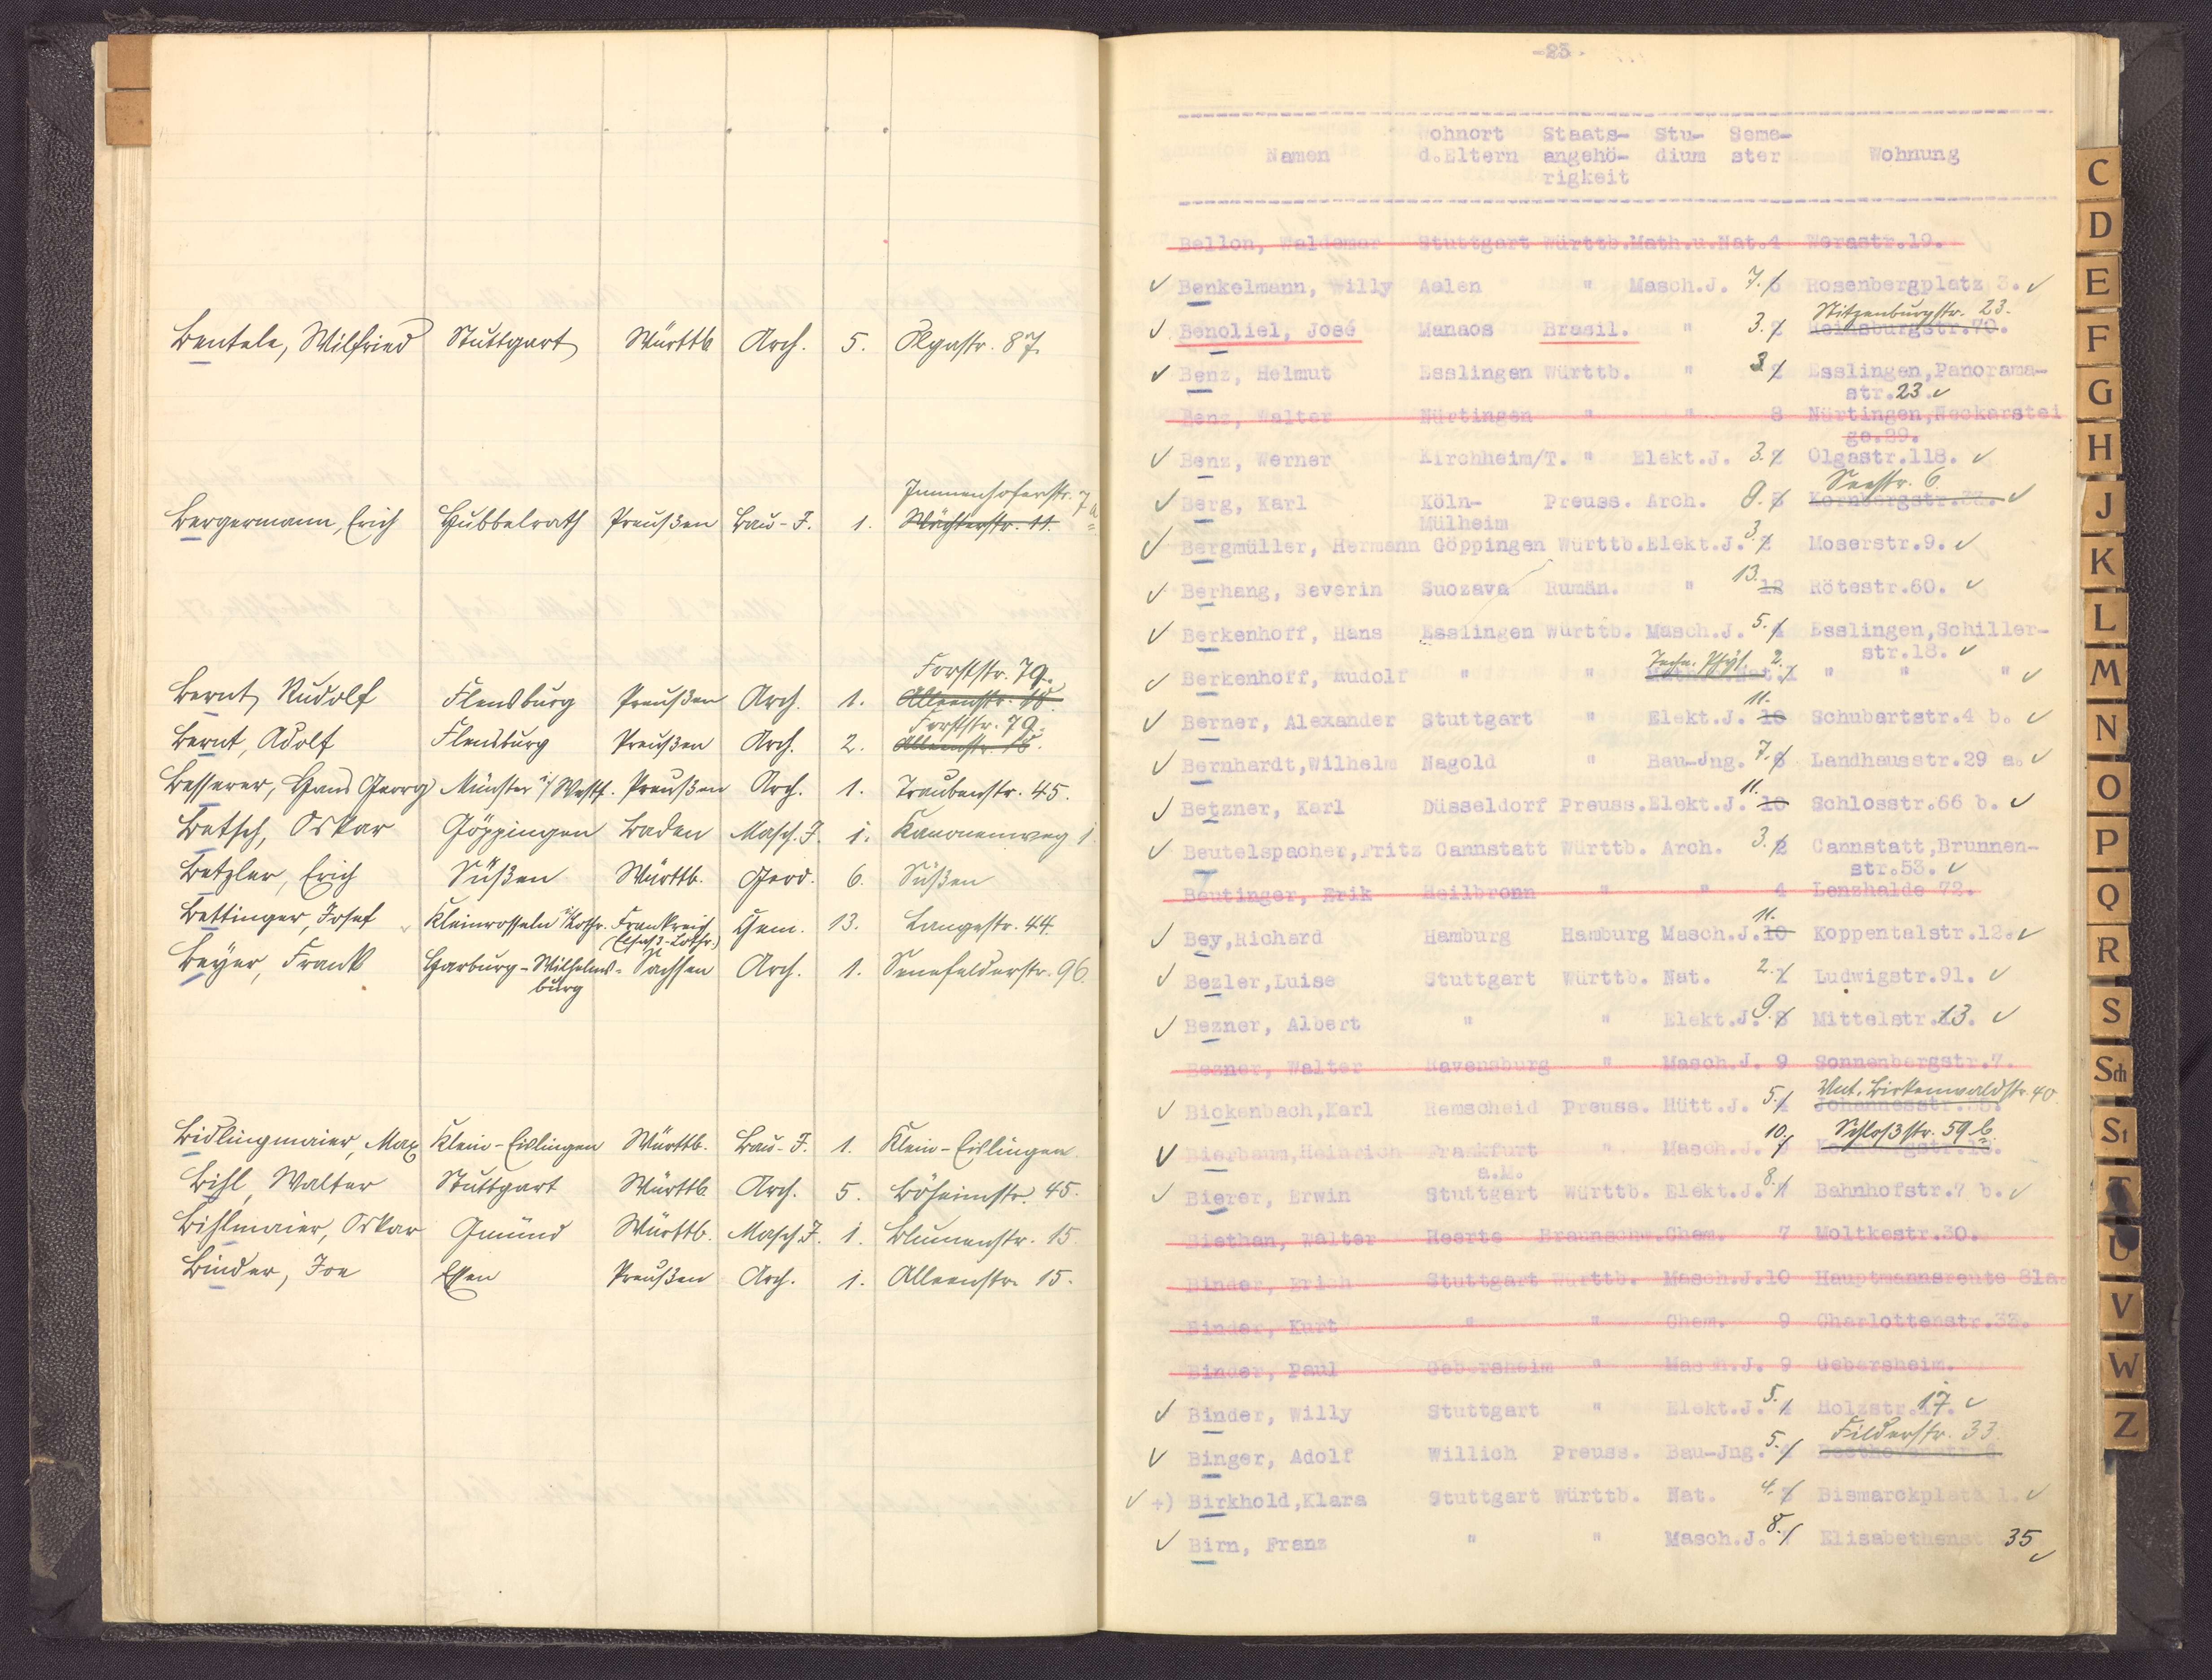 Bentele, Wilfried Stuttgart Württb. Arch. 5. Olgastr. 87.
Immenhoferstr. 7a
Bergermann, Erich Hubbelrath Preußen Bau-J. 1. Wächterstr. 11.
Forststr. 79.
Bernt, Rudolf Flensburg Preußen Arch. 1. Alleenstr. 18.
Forststr. 79.
Bernt, Adolf Flensburg Preußen Arch. 2. Alleenstr. 18.
Besserer, Hans Georg Münster i/Westf. Preußen Arch. 1. Traubenstr. 45.
Betsch, Oskar Göppingen Baden Masch.J. 1. Kanonenweg 1
Betzler, Erich Süßen Württb. Geod. 6. Süßen
Bettinger, Josef Kleinrosseln i/Lothr. Frankreich Chem. 13. Langestr. 44.
(Elsaß-Lothr.)
Beyer, Frank Harburg-Wilhelms- Sachsen Arch. 1. Senefelderstr. 96.
burg
Bidlingmaier, Max Klein-Eislingen Württb. Bau-J. 1. Klein-Eislingen.
Bihl, Walter Stuttgart Württb. Arch. 5. Böheimstr. 45.
Bihlmaier, Oskar Gmünd Württb. Masch.J. 1. Blumenstr. 15.
Binder, Joe Essen Preußen Arch. 1. Alleenstr. 15.
-25-
Wohnort Staats- Stu- Seme-
Namen d.Eltern angehö- dium ster Wohnung
rigkeit
Bellon, Waldemar Stuttgart Württb.Math.u.Nat.4 Werastr.19.
✓ Benkelmann, Willy Aalen " Masch.J. 7. 6 Rosenbergplatz 3. ✓
Stitzenburgstr. 23.
✓ Benoliel, José Manaos Brasil. " 3. 2 Reinsburgstr.70.
✓ Benz, Helmut Esslingen Württb. " 3 2 Esslingen,Panorama-
str.23. ✓
Benz, Walter Nürtingen " " 8 Nürtingen,Neckarstei
ge.29.
✓ Benz, Werner Kirchheim/T. " Elekt.J. 3. 2 Olgastr.118. ✓
Seestr. 6.
✓ Berg, Karl Köln- Preuss. Arch. 9. 8 Kornbergstr.38. ✓
Mülheim
✓ Bergmüller, Hermann Göppingen Württb.Elekt.J. 3. 2 Moserstr.9. ✓
✓ Berhang, Severin Suozava Rumän. " 13. 12 Rötestr.60. ✓
✓ Berkenhoff, Hans Esslingen Württb. Masch.J. 5. 4 Esslingen,Schiller-
str.18. ✓
Techn. Phys. 2.
✓ Berkenhoff, Rudolf " " Math.u.Nat.1 " " " ✓
✓ Berner, Alexander Stuttgart " Elekt.J. 11. 10 Schubartstr.4 b. ✓
✓ Bernhardt,Wilhelm Nagold " Bau-Jng. 7. 6 Landhausstr.29 a. ✓
✓ Betzner, Karl Düsseldorf Preuss.Elekt.J. 11. 10 Schlosstr.66 b. ✓
✓ Beutelspacher,Fritz Cannstatt Württb. Arch. 3. 2 Cannstatt,Brunnen-
str.53. ✓
Beutinger, Erik Heilbronn " " 4 Lenzhalde 72.
✓ Bey,Richard Hamburg Hamburg Masch.J. 11. 10 Koppentalstr.12. ✓
✓ Bezler,Luise Stuttgart Württb. Nat. 2. 1 Ludwigstr.91. ✓
✓ Bezner, Albert " " Elekt.J. 9. 8 Mittelstr.13. ✓
Bezner, Walter Ravensburg " Masch.J. 9 Sonnenbergstr.7.
Unt. Birkenwaldstr. 40
✓ Bickenbach,Karl Remscheid Preuss. Hütt.J. 5. 4 Johannesstr.
Schloßstr. 59 b.
✓ Bierbaum,Heinrich Frankfurt " Masch.J. 10. 9
a.M.
✓ Bierer, Erwin Stuttgart Württb. Elekt.J. 8. Bahnhofstr.7 b. ✓
Biethan, Walter Heerte Braunschw.Chem. 7 Moltkestr.30.
Binder, Erich Stuttgart Württb. Masch.J.10 Hauptmannsreute 81a.
Binder, Kurt " " Chem. 9 Charlottenstr.33.
Binder, Paul Gebersheim " Masch.J. 9 Gebersheim.
✓ Binder, Willy Stuttgart " Elekt.J. 5. 4 Holzstr.17. ✓
Filderstr. 33.
✓ Binger, Adolf Willich Preuss. Bau-Jng. 5. 4 Beethovenstr.6.
✓ +) Birkhold,Klara Stuttgart Württb. Nat. 4. 3 Bismarckplatz 1. ✓
✓ Birn, Franz " " Masch.J. 8. Elisabethenst 35 ✓
C
D
E
F
G
H
J
K
L
M
N
O
P
Q
R
S
Sch
St
T
U
V
W
Z